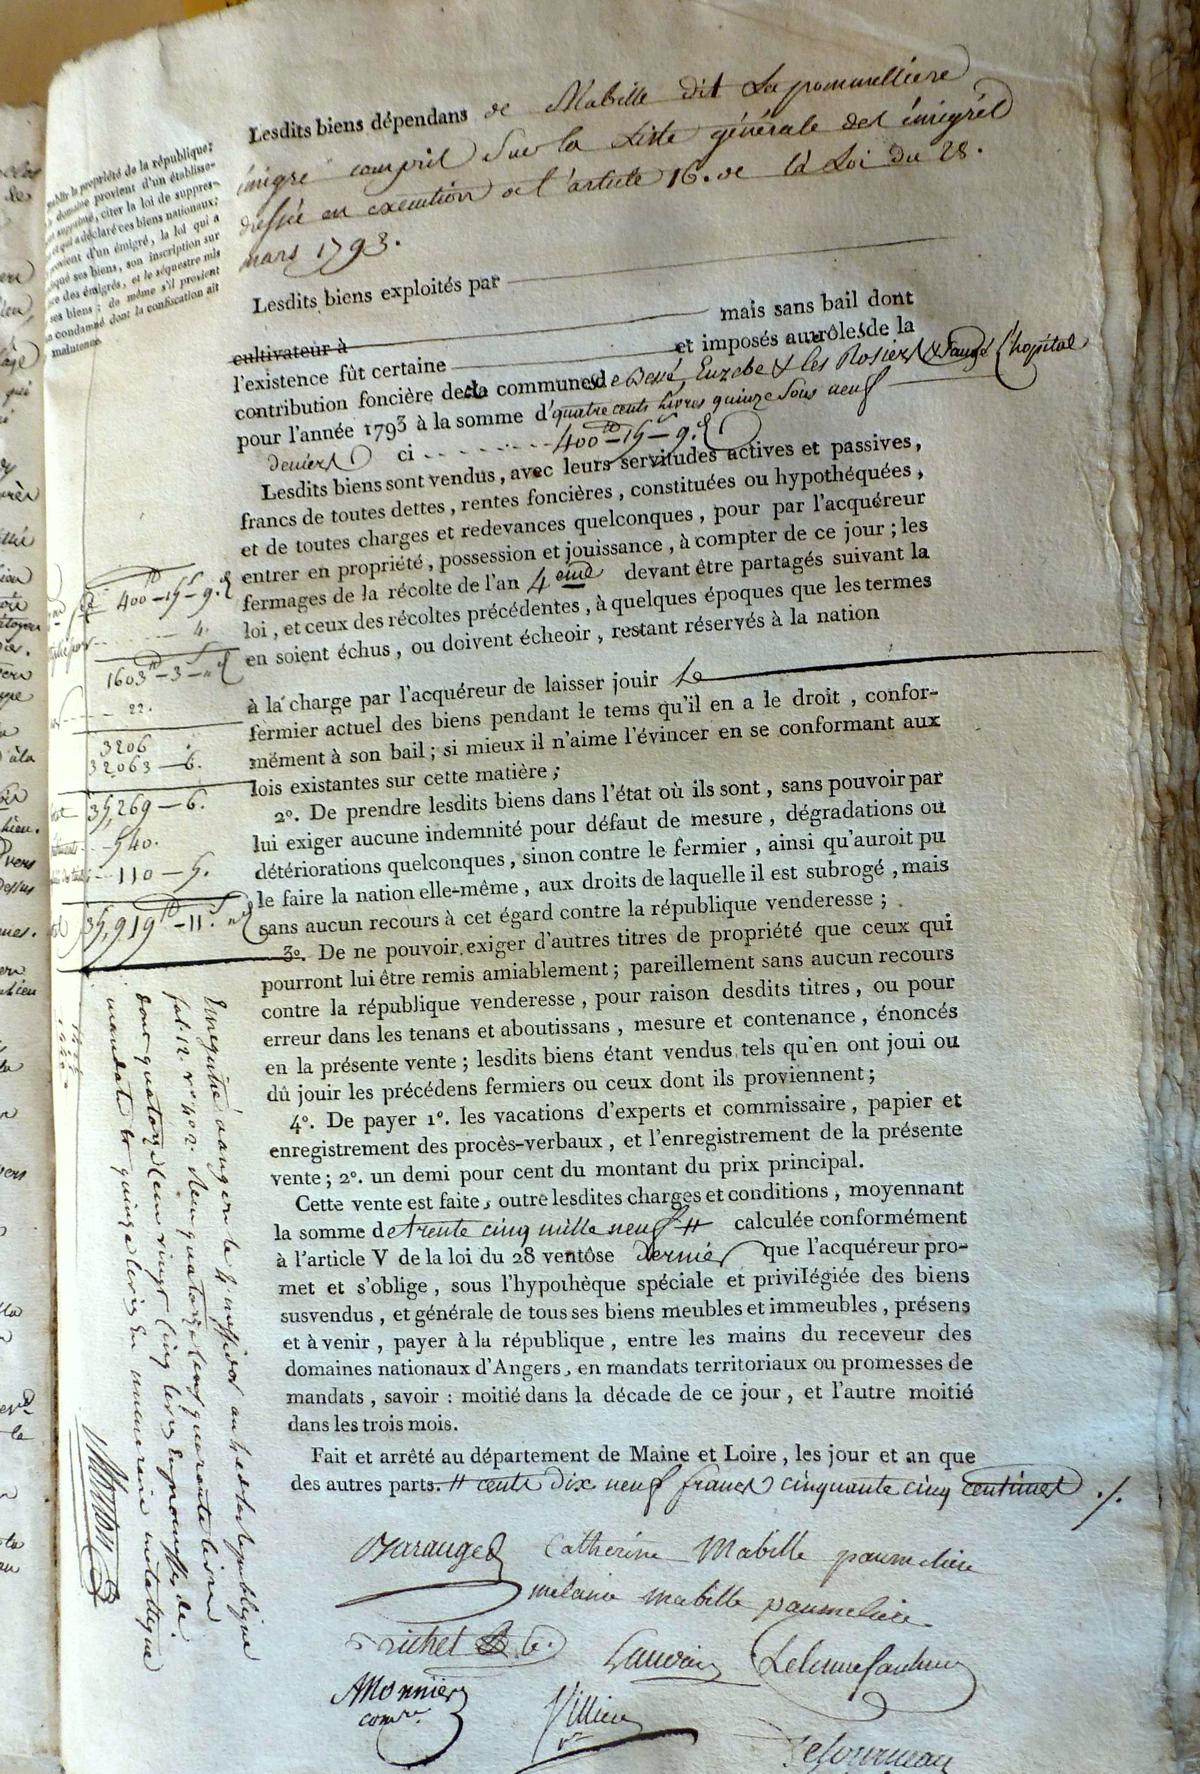 Lesdits biens dépendans de Mabille dit La pommelliere
émigré compris Sur la Liste générale des émigrés
dressée en execution de l'article 16. de la Loi du 28.
mars 1793.
ablir la propriété de la république;
domaine provient d'un établisse-
supprimé, citer la loi de suppres-
et qui a déclaré ces biens nationaux;
provient d'un émigré, la loi qui a
qué ses biens, son inscription sur
ce des émigrés, et le séquestre mis
ses biens; de même s'il provient
condamné dont la confiscation ait
maintenue.
Lesdits biens exploités par
cultivateur à mais sans bail dont
l'existence fût certaine et imposés au rôles de la
contribution foncière de la communes de Bessé, Euzebe & les Rosiers & l'hopital
pour l'année 1793 à la somme d'quatre cents livres quinze sous neuf
deniers ci 400tt-15s-9.d
Lesdits biens sont vendus, avec leurs servitudes actives et passives,
francs de toutes dettes, rentes foncières, constituées ou hypothéquées,
et de toutes charges et redevances quelconques, pour par l'acquéreur
entrer en propriété, possession et jouissance, à compter de ce jour; les
fermages de la récolte de l'an 4eme devant être partagés suivant la
loi, et ceux des récoltes précédentes, à quelques époques que les termes
en soient échus, ou doivent écheoir, restant réservés à la nation
400tt-15s-9.d
4.
1603tt-3-"
22.
3206
32063-6.
35,269-6.
540.
110-5.
35,919tt-11s.
à la charge par l'acquéreur de laisser jouir Le
fermier actuel des biens pendant le tems qu'il en a le droit, confor-
mément à son bail; si mieux il n'aime l'évincer en se conformant aux
lois existantes sur cette matière;
2°. De prendre lesdits biens dans l'état où ils sont, sans pouvoir par
lui exiger aucune indemnité pour défaut de mesure, dégradations ou
détériorations quelconques, sinon contre le fermier, ainsi qu'auroit pu
le faire la nation elle-même, aux droits de laquelle il est subrogé, mais
sans aucun recours à cet égard contre la république venderesse;
3°. De ne pouvoir exiger d'autres titres de propriété que ceux qui
pourront lui être remis amiablement; pareillement sans aucun recours
contre la république venderesse, pour raison desdits titres, ou pour
erreur dans les tenans et aboutissans, mesure et contenance, énoncés
en la présente vente; lesdits biens étant vendus tels qu'en ont joui ou
dû jouir les précédens fermiers ou ceux dont ils proviennent;
4°. De payer 1°. les vacations d'experts et commissaire, papier et
enregistrement des procès-verbaux, et l'enregistrement de la présente
vente; 2°. un demi pour cent du montant du prix principal.
Cette vente est faite, outre lesdites charges et conditions, moyennant
la somme de trente cinq mille neuf # calculée conformément
à l'article V de la loi du 28 ventôse dernier que l'acquéreur pro-
met et s'oblige, sous l'hypothèque spéciale et privilégiée des biens
susvendus, et générale de tous ses biens meubles et immeubles, présens
et à venir, payer à la république, entre les mains du receveur des
domaines nationaux d'Angers, en mandats territoriaux ou promesses de
mandats, savoir: moitié dans la décade de ce jour, et l'autre moitié
dans les trois mois.
Fait et arrêté au département de Maine et Loire, les jour et an que
des autres parts. # cents dix neuf francs cinquante cinq centimes ./.
Enregistré à angers le 4 messidor an 4e de la République
fol. 12 quatorze cens quarante livres
dont quatorze cens vingt cinq livres en promesses de
mandats et quinze livres en numeraire metallique
Catherine Mabille paumeliere
melanie mabille paumeliere
AMonnier
comre.
Villier